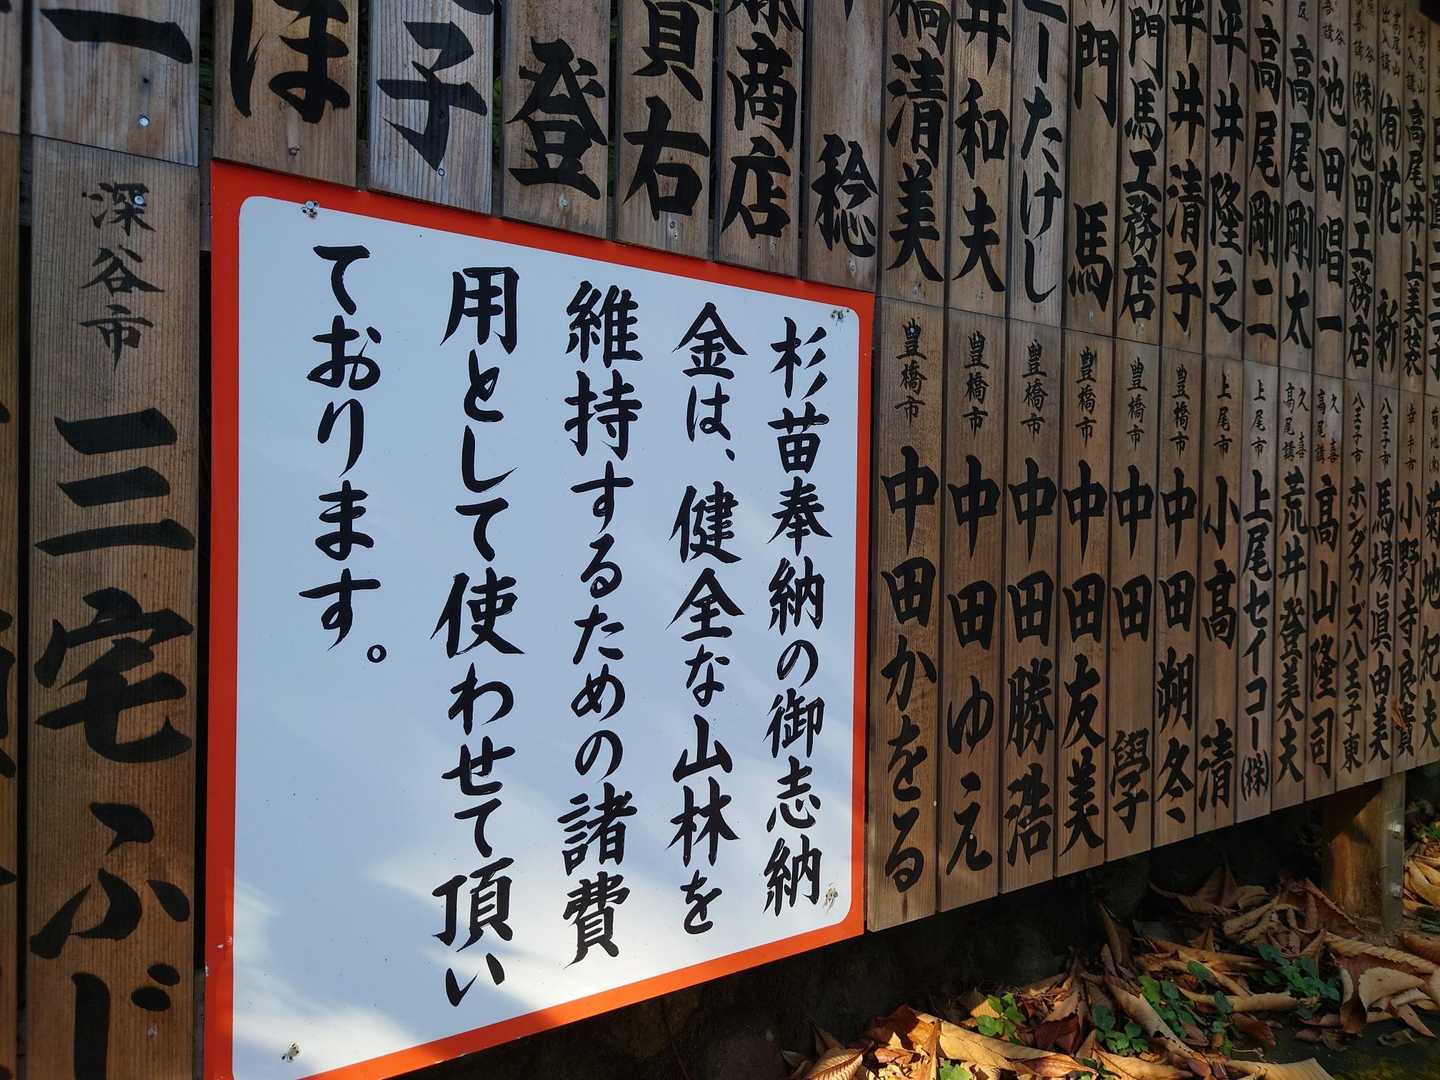 杉苗奉納の御志納
金は、健全な山林を
維持するための諸費
用として使わせて頂い
ております。
深谷市 三宅ふじ
ほ
子
登
貢右
商店
稔
橋清美
井和夫
ーたけし
門 馬
門馬工務店
平井清子
平井隆之
高尾剛二
高尾剛太
池田唱一
(株)池田工務店
(有)花 新
高尾井上美装
豊橋市 中田かをる
豊橋市 中田ゆえ
豊橋市 中田勝浩
豊橋市 中田友美
豊橋市 中田 學
豊橋市 中田朔冬
上尾市 小高 清
上尾市 上尾セイコー(株)
久喜高尾講 荒井登美夫
久喜高尾講 高山隆司
八王子市 ホンダカーズ八王子東
八王子市 馬場眞由美
幸手市 小野寺良貴
菊地紀夫